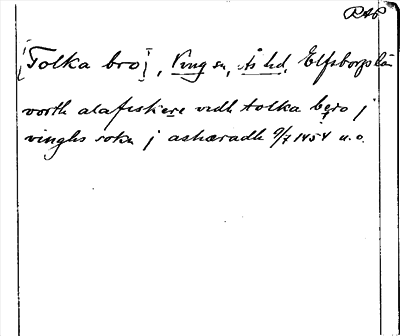 RAP
[Tolka bro], Ving sn, Ås hd, Elfsborgs län
vorth alafiskiere vedh tolka bero j
vinghs sokn j asharadh 9/7 1454 u.o.